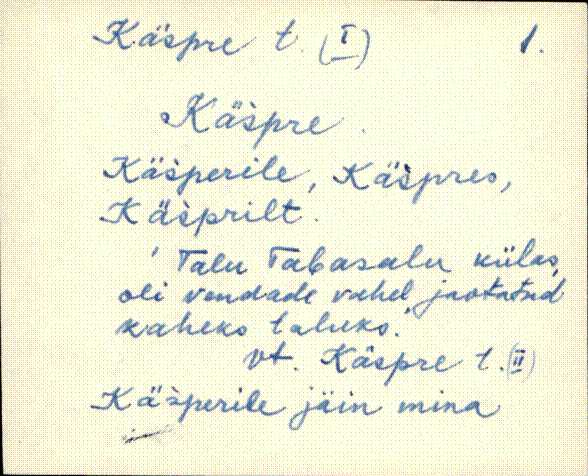 Käspre t. (I) 1.
Käs̀pre.
Käs̀perile, Käs̀pres,
Käs̀prilt.
'Talu Tabasalu külas,
oli vendade vahel jaotatud
kaheks taluks.'
vt. Käspre t. (II)
Käs̀perile jäin mina